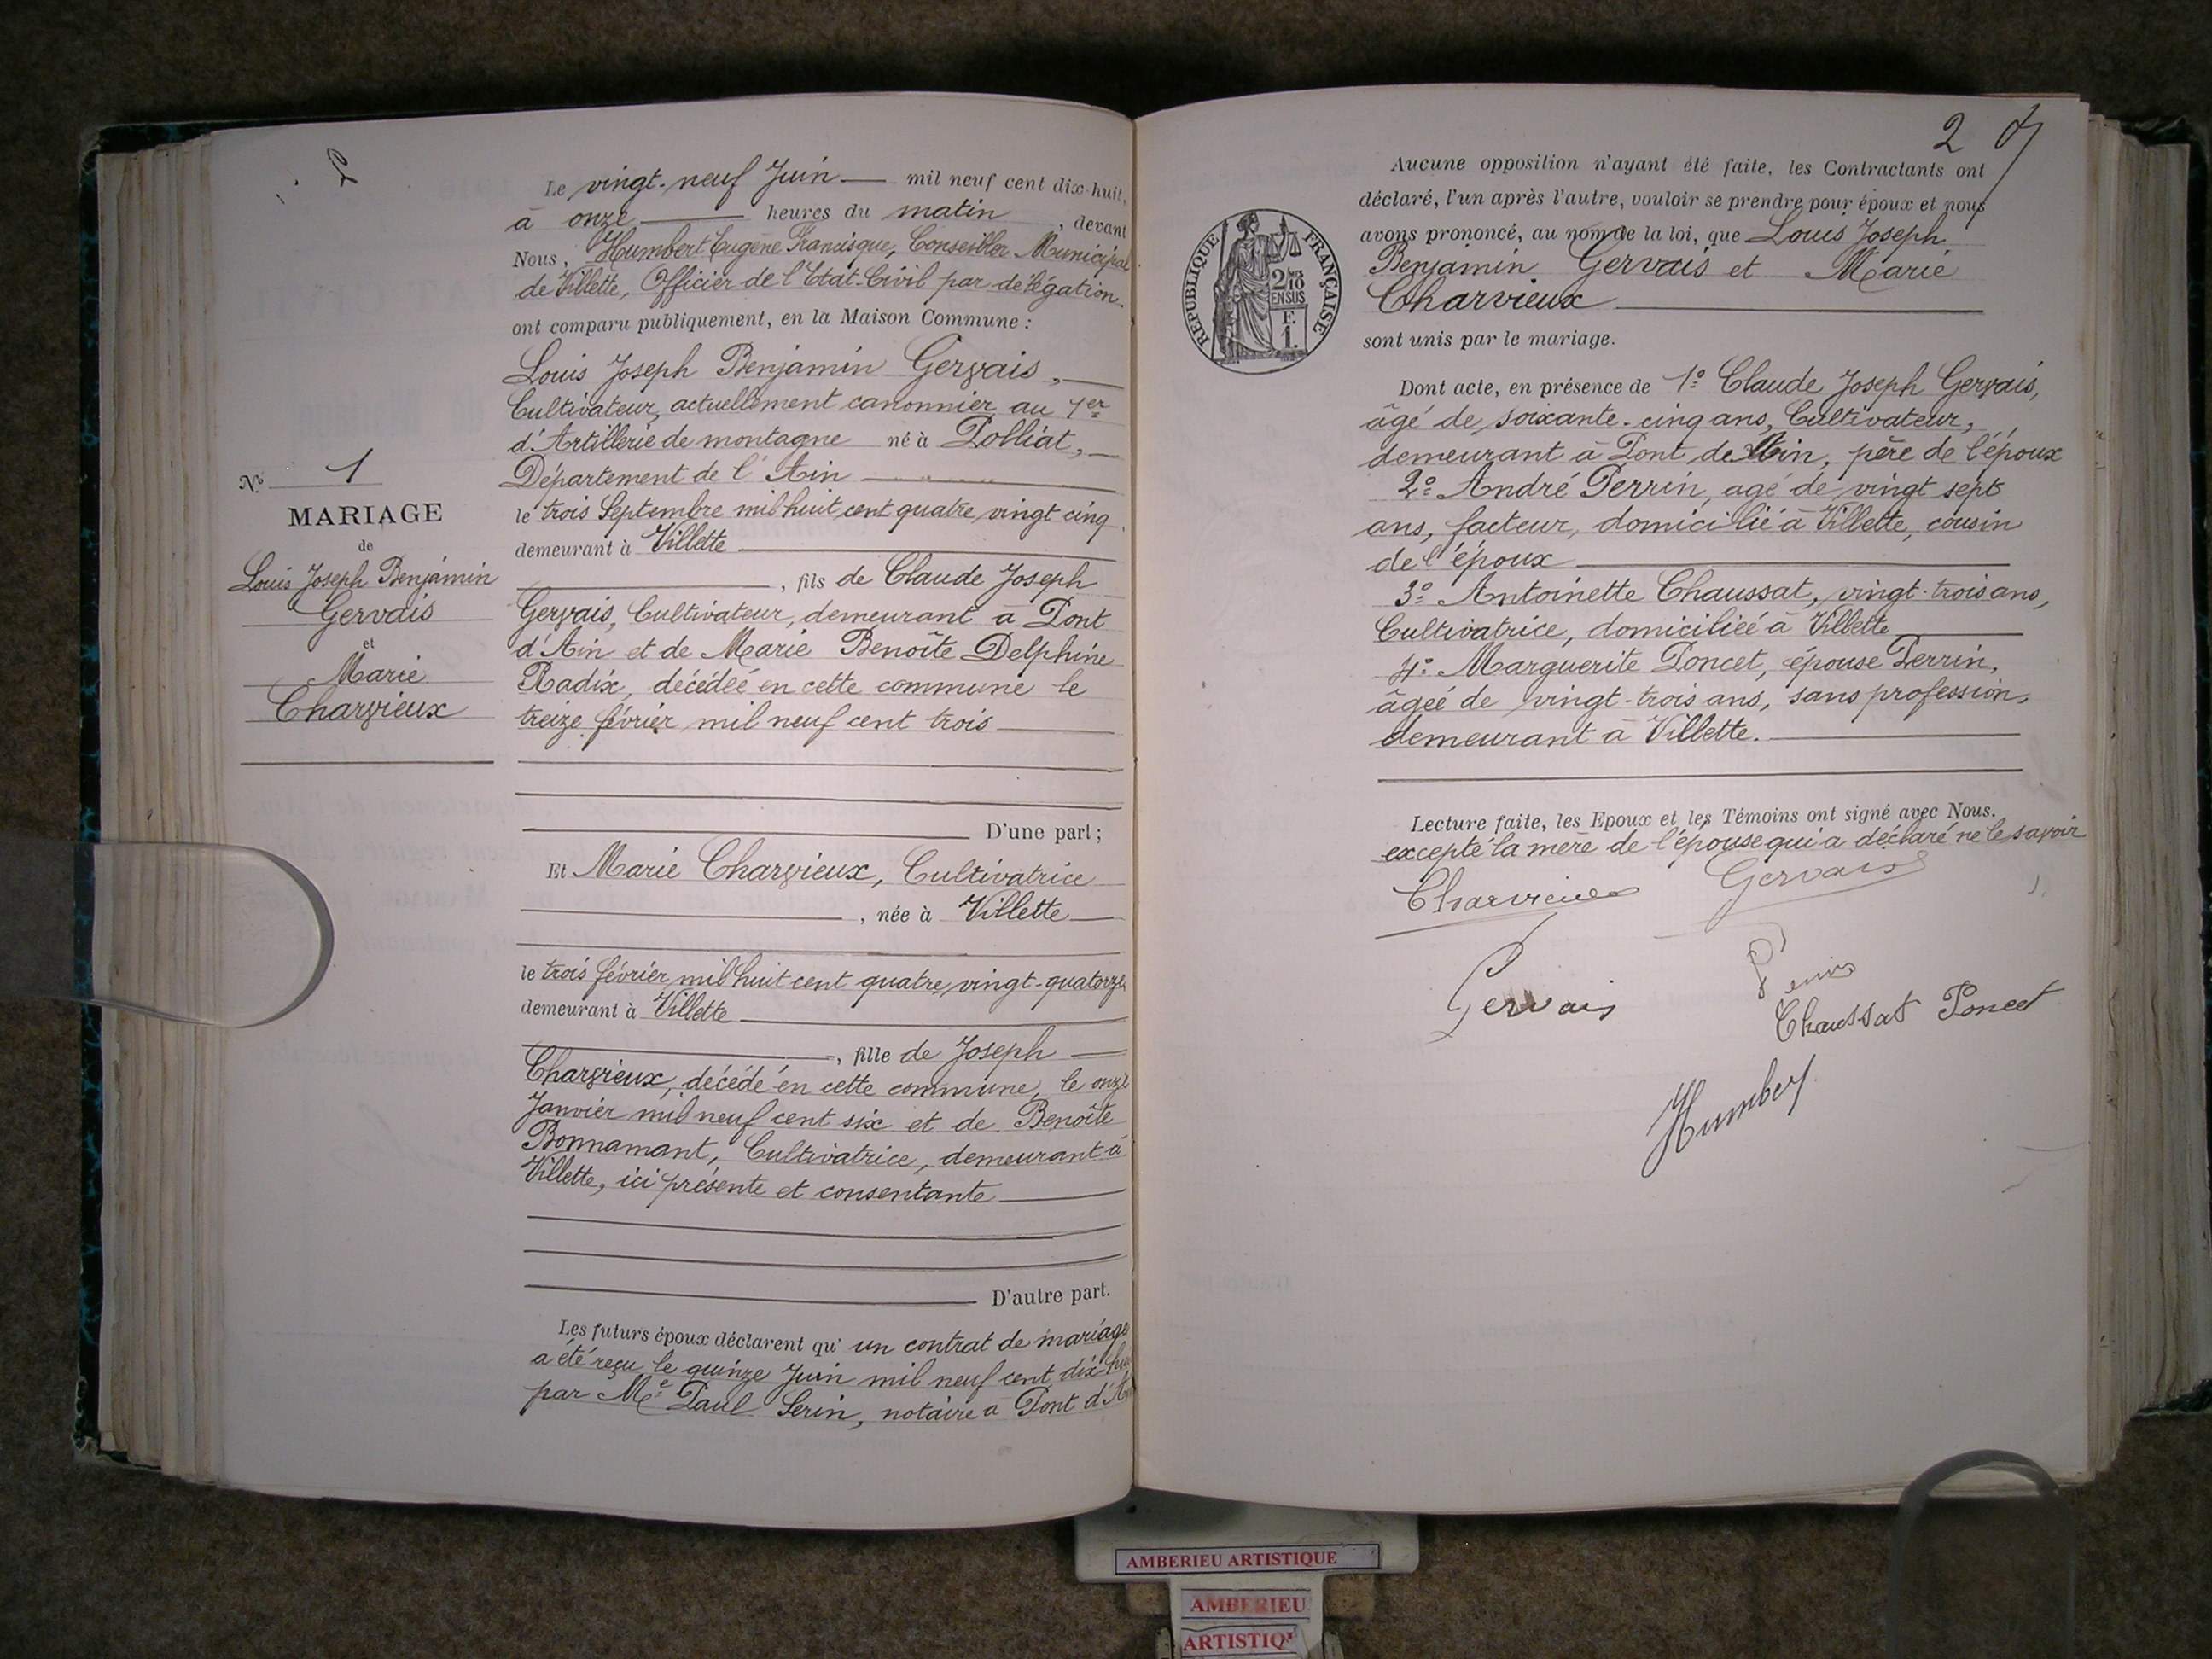 2
Le vingt-neuf Juin mil neuf cent dix-huit,
à onze heures du matin, devant
Nous, Humbert Eugène Francisque, Conseiller Municipal
de Villette, Officier de l'Etat-Civil par délégation.
ont comparu publiquement, en la Maison Commune :
Louis Joseph Benjamin Gervais,
Cultivateur, actuellement canonnier au 1er
d'Artillerie de montagne né à Polliat,
Département de l'Ain
le trois Septembre mil huit cent quatre vingt cinq
demeurant à Villette
, fils de Claude Joseph
Gervais, Cultivateur, demeurant à Pont
d'Ain et de Marie Benoîte Delphine
Radix, décédée en cette commune le
treize février mil neuf cent trois
D'une part ;
Et Marie Charvieux, Cultivatrice
, née à Villette
le trois février mil huit cent quatre vingt-quatorze
demeurant à Villette
, fille de Joseph
Charvieux, décédé en cette commune, le onze
Janvier mil neuf cent six et de Benoîte
Bonnamant, Cultivatrice, demeurant à
Villette, ici présente et consentante
D'autre part.
Les futurs époux déclarent qu'un contrat de mariage
a été reçu le quinze Juin mil neuf cent dix-hui
par Me Paul Serin, notaire à Pont d'A
No 1
MARIAGE
de
Louis Joseph Benjamin
Gervais
et
Marie
Charvieux
2
Aucune opposition n'ayant été faite, les Contractants ont
déclaré, l'un après l'autre, vouloir se prendre pour époux et nous
avons prononcé, au nom de la loi, que Louis Joseph
Benjamin Gervais et Marie
Charvieux
sont unis par le mariage.
REPUBLIQUE FRANÇAISE
2/10
EN SUS
F.
1.
Dont acte, en présence de 1º Claude Joseph Gervais,
âgé de soixante-cinq ans, Cultivateur,
demeurant à Pont de Ain, père de l'époux
2º André Perrin, agé de vingt sept
ans, facteur, domicilié à Villette, cousin
de l'époux
3º Antoinette Chaussat, vingt-trois ans,
Cultivatrice, domiciliée à Villette
4º Marguerite Poncet, épouse Perrin,
âgée de vingt-trois ans, sans profession,
demeurant à Villette.
Lecture faite, les Epoux et les Témoins ont signé avec Nous.
excepté la mère de l'épouse qui a déclaré ne le savoir
Charvieux Gervais
Gervais Perrin
Chaussat Poncet
Humbert
AMBERIEU ARTISTIQUE
AMBERIEU
ARTISTIQ